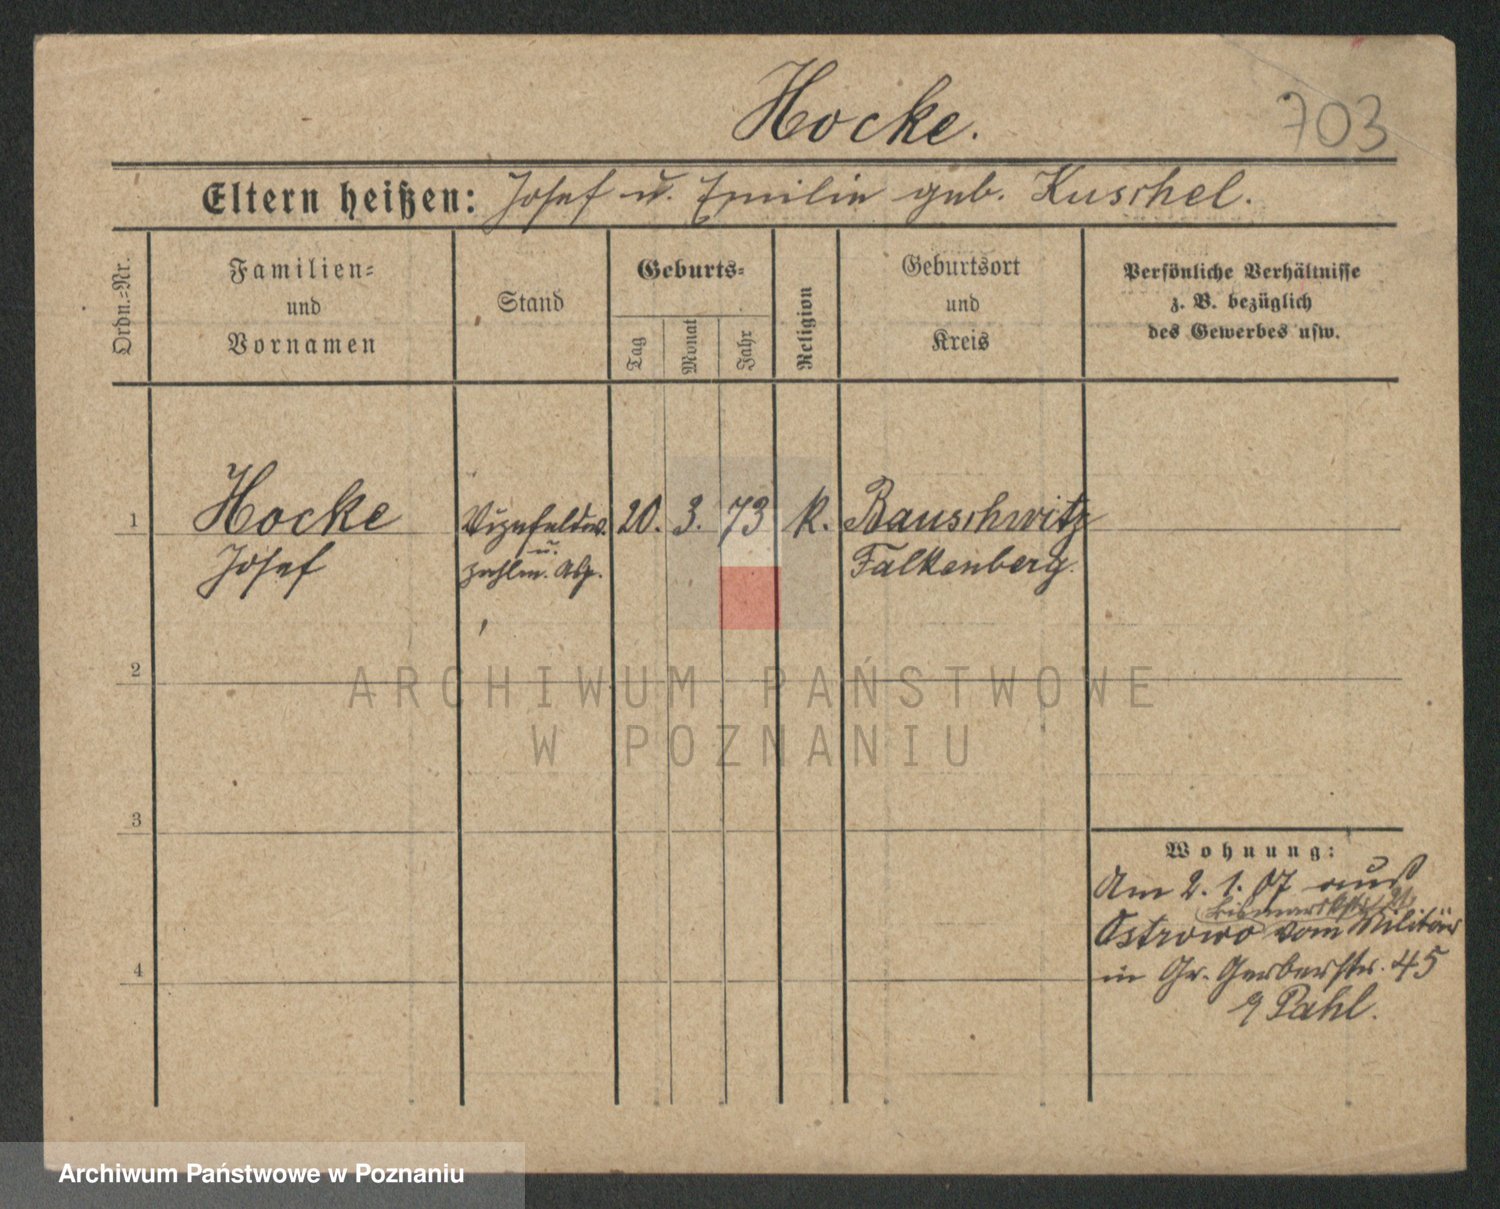 Hocke.
703
Eltern heißen: Josef u. Emilie geb. Kuschel.
Ordn.=Nr.
Familien=
und
Vornamen
Stand
Geburts=
Tag
Monat
Jahr
Religion
Geburtsort
und
Kreis
Persönliche Verhältnisse
z. B. bezüglich
des Gewerbes usw.
1
Hocke
Josef
Vizefeldw.
u.
Zahlm. Asp.
20. 3. 73 K.
Bauschwitz
Falkenberg.
2
3
4
Wohnung:
Am 2. 1. 07 aus
Bismarckstr.
Ostrowo vom Militär
in Gr. Gerberstr. 45
Pahl.
ARCHIWUM PAŃSTWOWE
W POZNANIU
Archiwum Państwowe w Poznaniu